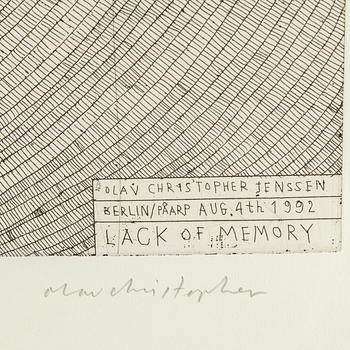 OLAV CHRISTOPHER JENSSEN
BERLIN/PÅARP AUG. 4th 1992
LACK OF MEMORY
olav christopher